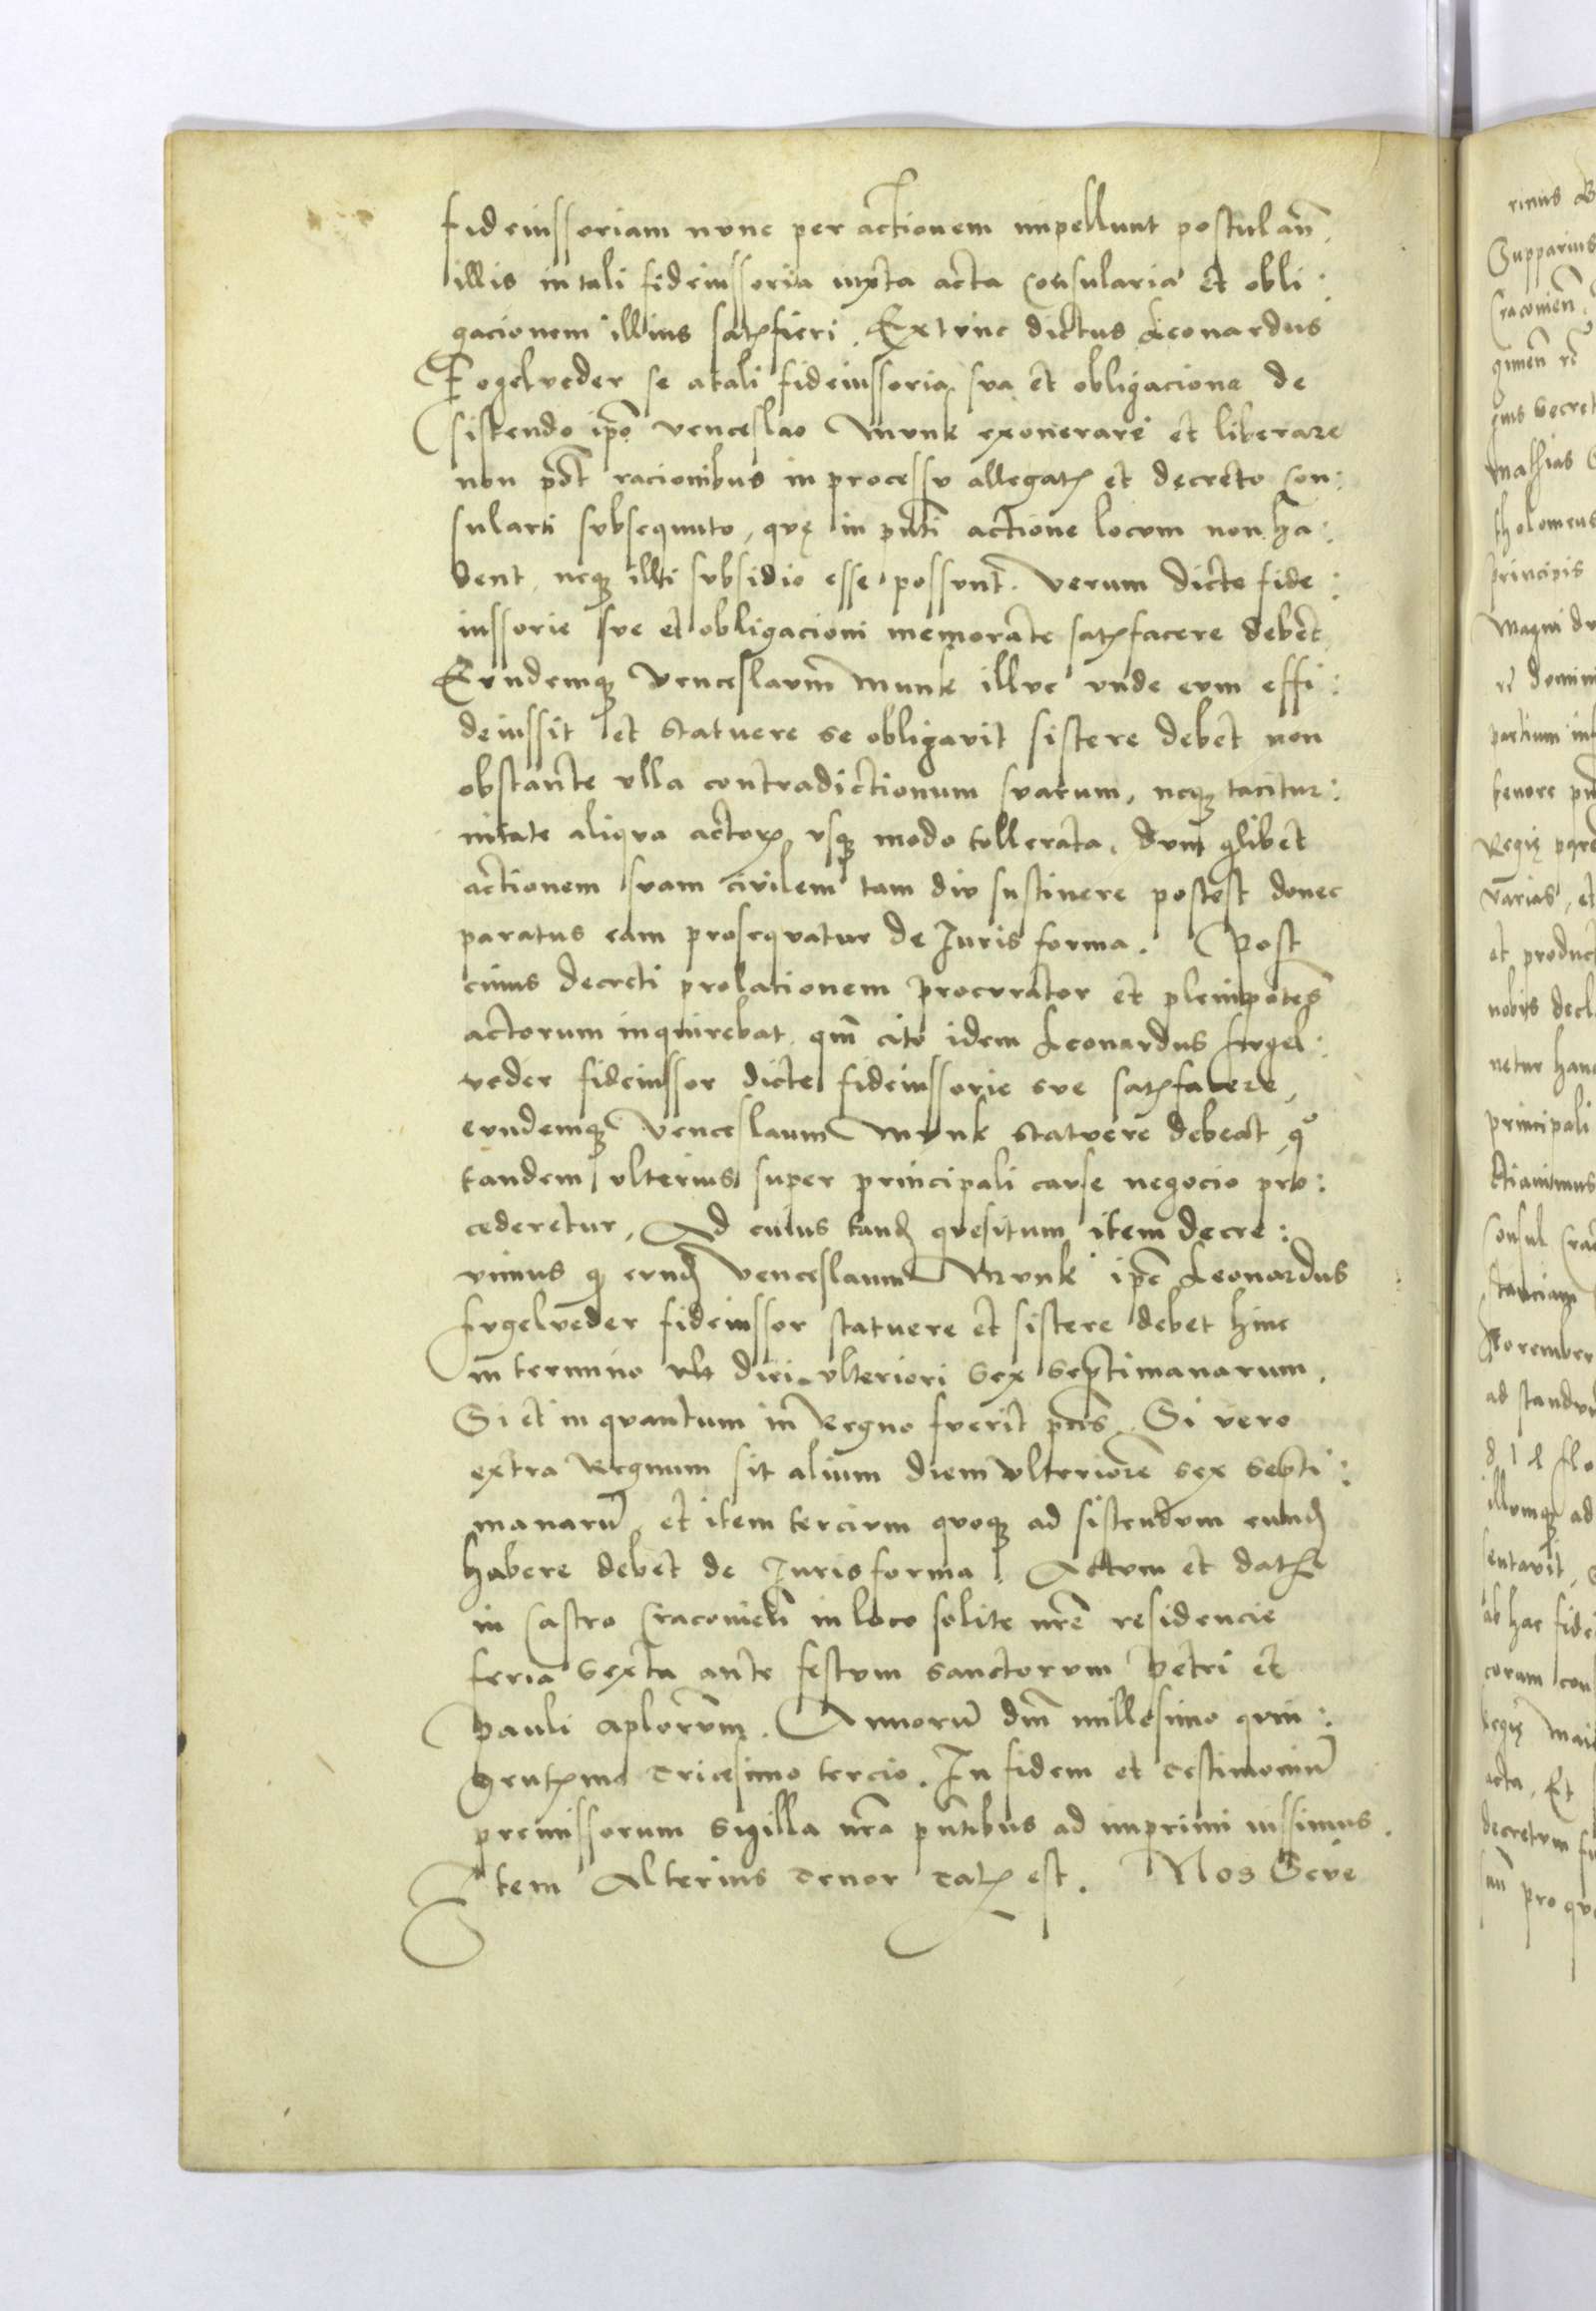 fideiussoriam nunc per actionem impellunt postulan̄
illis in tali fideiussoria iuxta acta consularia et obli:
gacionem illius satꝭfieri. Extunc dictus Leonardus
Fogelveder se a tali fideiussoria sua et obligacione de
sistendo ip̄o Venceslao Munk exonerare et liberare
non pōt racionibus in processu allegatꝭ et decreto con:
sulari subsequuto, quę in pn̄ti actione locum non ha:
bent neqꝫ illi subsidio esse possunt. Verum dicte fide:
iussorie sue et obligacioni memorate satꝭfacere debet
Eundemqꝫ Venceslaum Munk illuc unde eum effi:
deiussit et statuere se obligavit sistere debet non
obstante ulla contradictionum suarum, neqꝫ tacitur:
nitate aliqua actorꝭ usqꝫ modo tollerata, dum qlibet
actionem suam civilem tam diu sustinere postest donec
paratus eam prosequatur de Iuris forma. Post
cuius decreti prolationem procurator et plenipotēs
actorum inquirebat qm̄ cito idem Leonardus Fogel:
veder fideiussor dicte fideiussorie sue satꝭfacere,
eundemqꝫ Venceslaum Munk statuere debeat, qͦ
tandem ulterius super principali cause negocio pro:
cederetur, Ad cuius tand̄ quesitum item decre:
vimus q̄ eund̄ Venceslaum Munk ip̄e Leonardus
Fogelveder fideiussor statuere et sistere debet hinc
in termino ult diei ulteriori sex septimanarum.
Si et in quantum in Regno fuerit pn̄s. Si vero
extra Regnum sit alium diem ulteriorē sex septi:
manarū, et item tercium quoqꝫ ad sistendum eund̄
habere debet de Iuris forma. Actum et datꝭ
in Castro Cracovien̄ in loco solite nr̄e residencie
feria sexta ante festum sanctorum Petri et
Pauli aplorum. Annorū dn̄i millesimo quin:
gentꝭmo tricesimo tercio. In fidem et testimoniū
premissorum sigilla nr̄a pn̄tibus ad imprimi iussimus.
Item Alterius tenor talꝭ est. Nos Seve